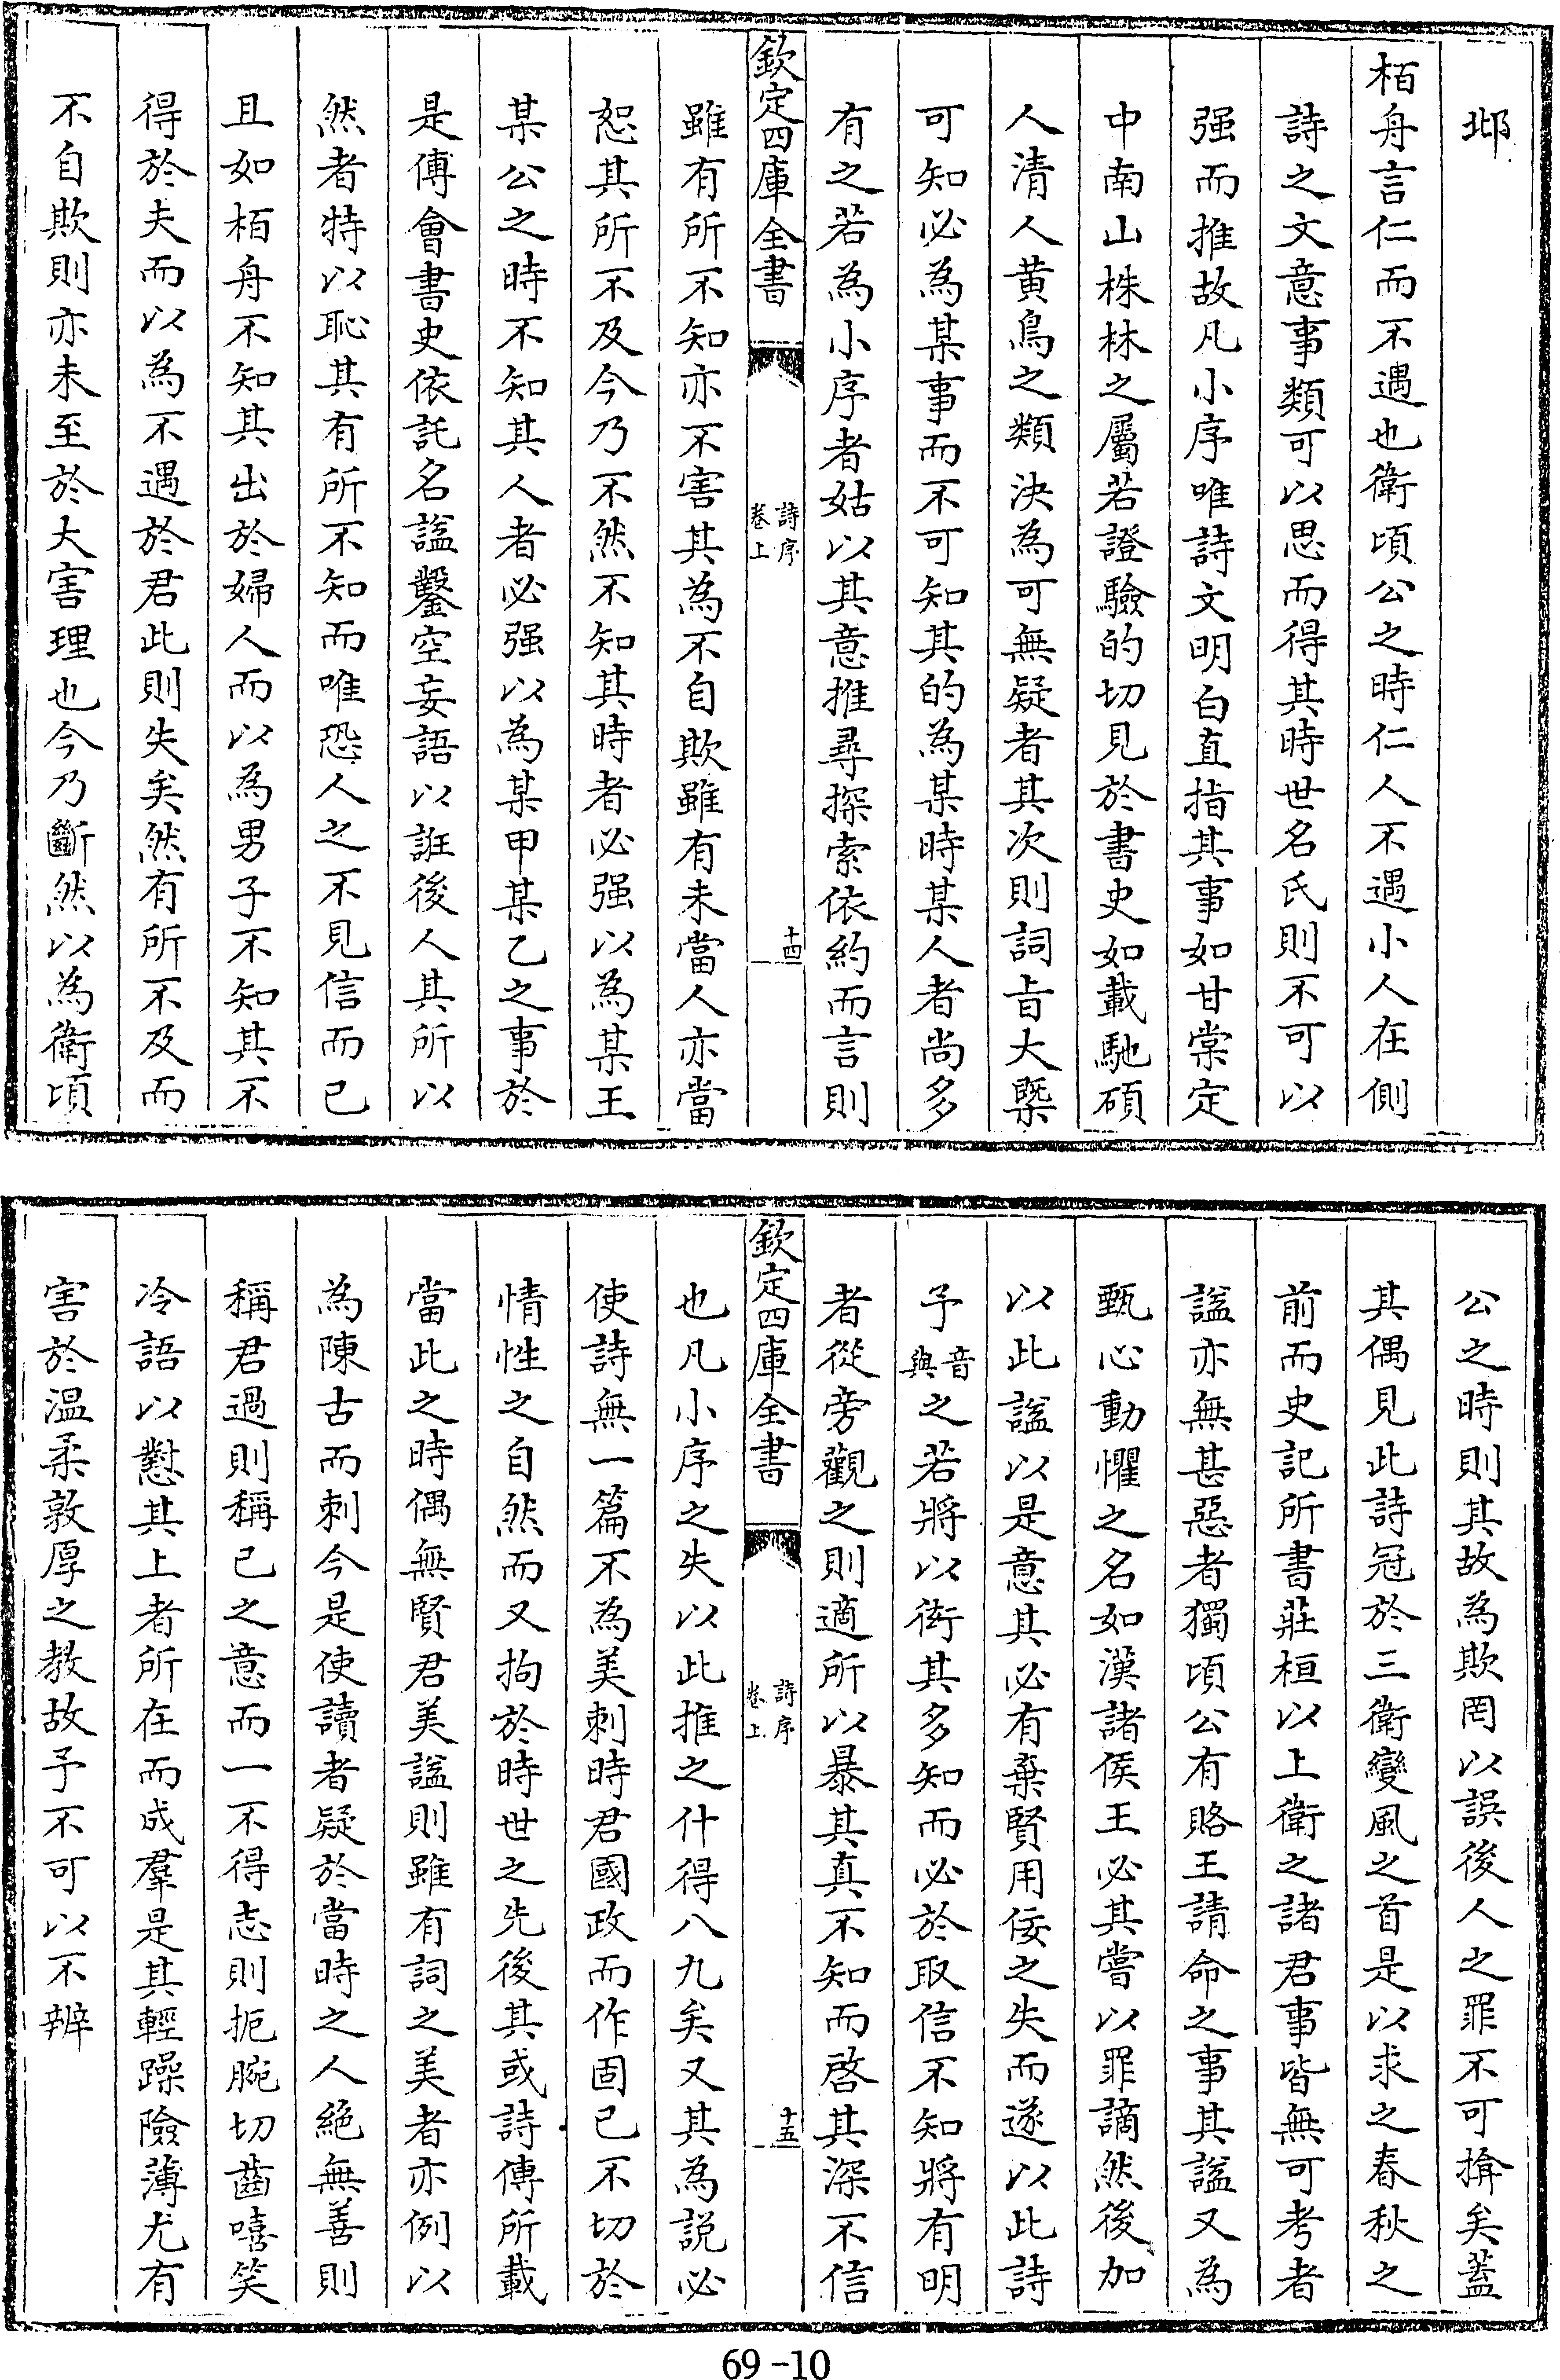 邶
栢舟言仁而不遇也衛頃公之時仁人不遇小人在側
詩之文意事類可以思而得其時世名氏則不可以
强而推故凡小序唯詩文明白直指其事如甘棠定
中南山株林之屬若證驗的切見於書史如載馳碩
人清人黄鳥之類決為可無疑者其次則詞旨大槩
可知必為某事而不可知其的為某時某人者尚多
有之若為小序者姑以其意推尋探索依約而言則
欽定四庫全書
詩序
卷上
十四
雖有所不知亦不害其為不自欺雖有未當人亦當
恕其所不及今乃不然不知其時者必强以為某王
某公之時不知其人者必强以為某甲某乙之事於
是傅會書史依託名諡鑿空妄語以誑後人其所以
然者特以恥其有所不知而唯恐人之不見信而已
且如栢舟不知其出於婦人而以為男子不知其不
得於夫而以為不遇於君此則失矣然有所不及而
不自欺則亦未至於大害理也今乃斷然以為衛頃
公之時則其故為欺罔以誤後人之罪不可揜矣蓋
其偶見此詩冠於三衛變風之首是以求之春秋之
前而史記所書莊桓以上衛之諸君事皆無可考者
諡亦無甚惡者獨頃公有賂王請命之事其諡又為
甄心動懼之名如漢諸侯王必其嘗以罪謫然後加
以此諡以是意其必有棄賢用佞之失而遂以此詩
予音與之若將以衒其多知而必於取信不知將有明
者從旁觀之則適所以暴其真不知而啓其深不信
欽定四庫全書
詩序
卷上
十五
也凡小序之失以此推之什得八九矣又其為説必
使詩無一篇不為美刺時君國政而作固已不切於
情性之自然而又拘於時世之先後其或詩傳所載
當此之時偶無賢君美諡則雖有詞之美者亦例以
為陳古而刺今是使讀者疑於當時之人絶無善則
稱君過則稱已之意而一不得志則扼腕切齒嘻笑
冷語以懟其上者所在而成羣是其輕躁險薄尤有
害於温柔敦厚之教故予不可以不辨
69-10